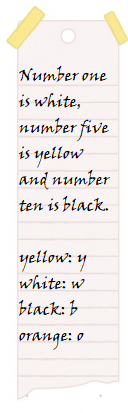 Number one
is white,
number five
is yellow
and number
ten is black.

yellow: y
white: w
black: b
orange: o